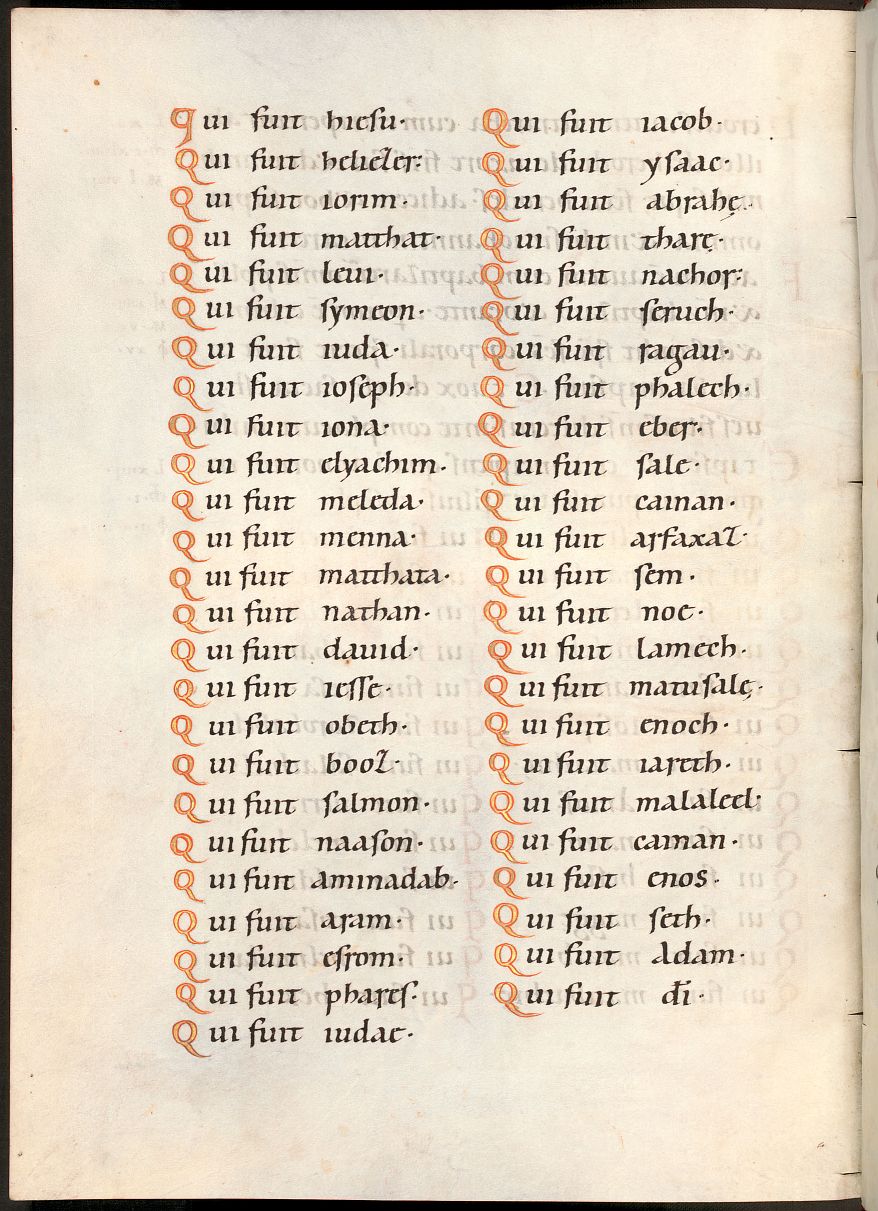 qui fuit hiesu·
Qui fuit heliezer:
Qui fuit iorim·
Qui fuit matthat·
Qui fuit leui·
Qui fuit symeon·
Qui fuit iuda·
Qui fuit ioseph·
Qui fuit iona·
Qui fuit elyachim·
Qui fuit meleda·
Qui fuit menna·
Qui fuit matthata·
Qui fuit nathan·
Qui fuit dauid·
Qui fuit iesse·
Qui fuit obeth·
Qui fuit booz·
Qui fuit salmon·
Qui fuit naason·
Qui fuit aminadab·
Qui fuit aram·
Qui fuit esrom·
Qui fuit phares·
Qui fuit iudae·
Qui fuit iacob·
Qui fuit ysaac·
Qui fuit abrahę·
Qui fuit tharę·
Qui fuit nachor:
Qui fuit seruch·
Qui fuit ragau·
Qui fuit phalech·
Qui fuit eber·
Qui fuit sale·
Qui fuit cainan·
Qui fuit arfaxaz·
Qui fuit sem·
Qui fuit noe·
Qui fuit lamech·
Qui fuit matusalę·
Qui fuit enoch·
Qui fuit iareth·
Qui fuit malaleel·
Qui fuit cainan·
Qui fuit enos·
Qui fuit seth·
Qui fuit Adam·
Qui fuit dī·